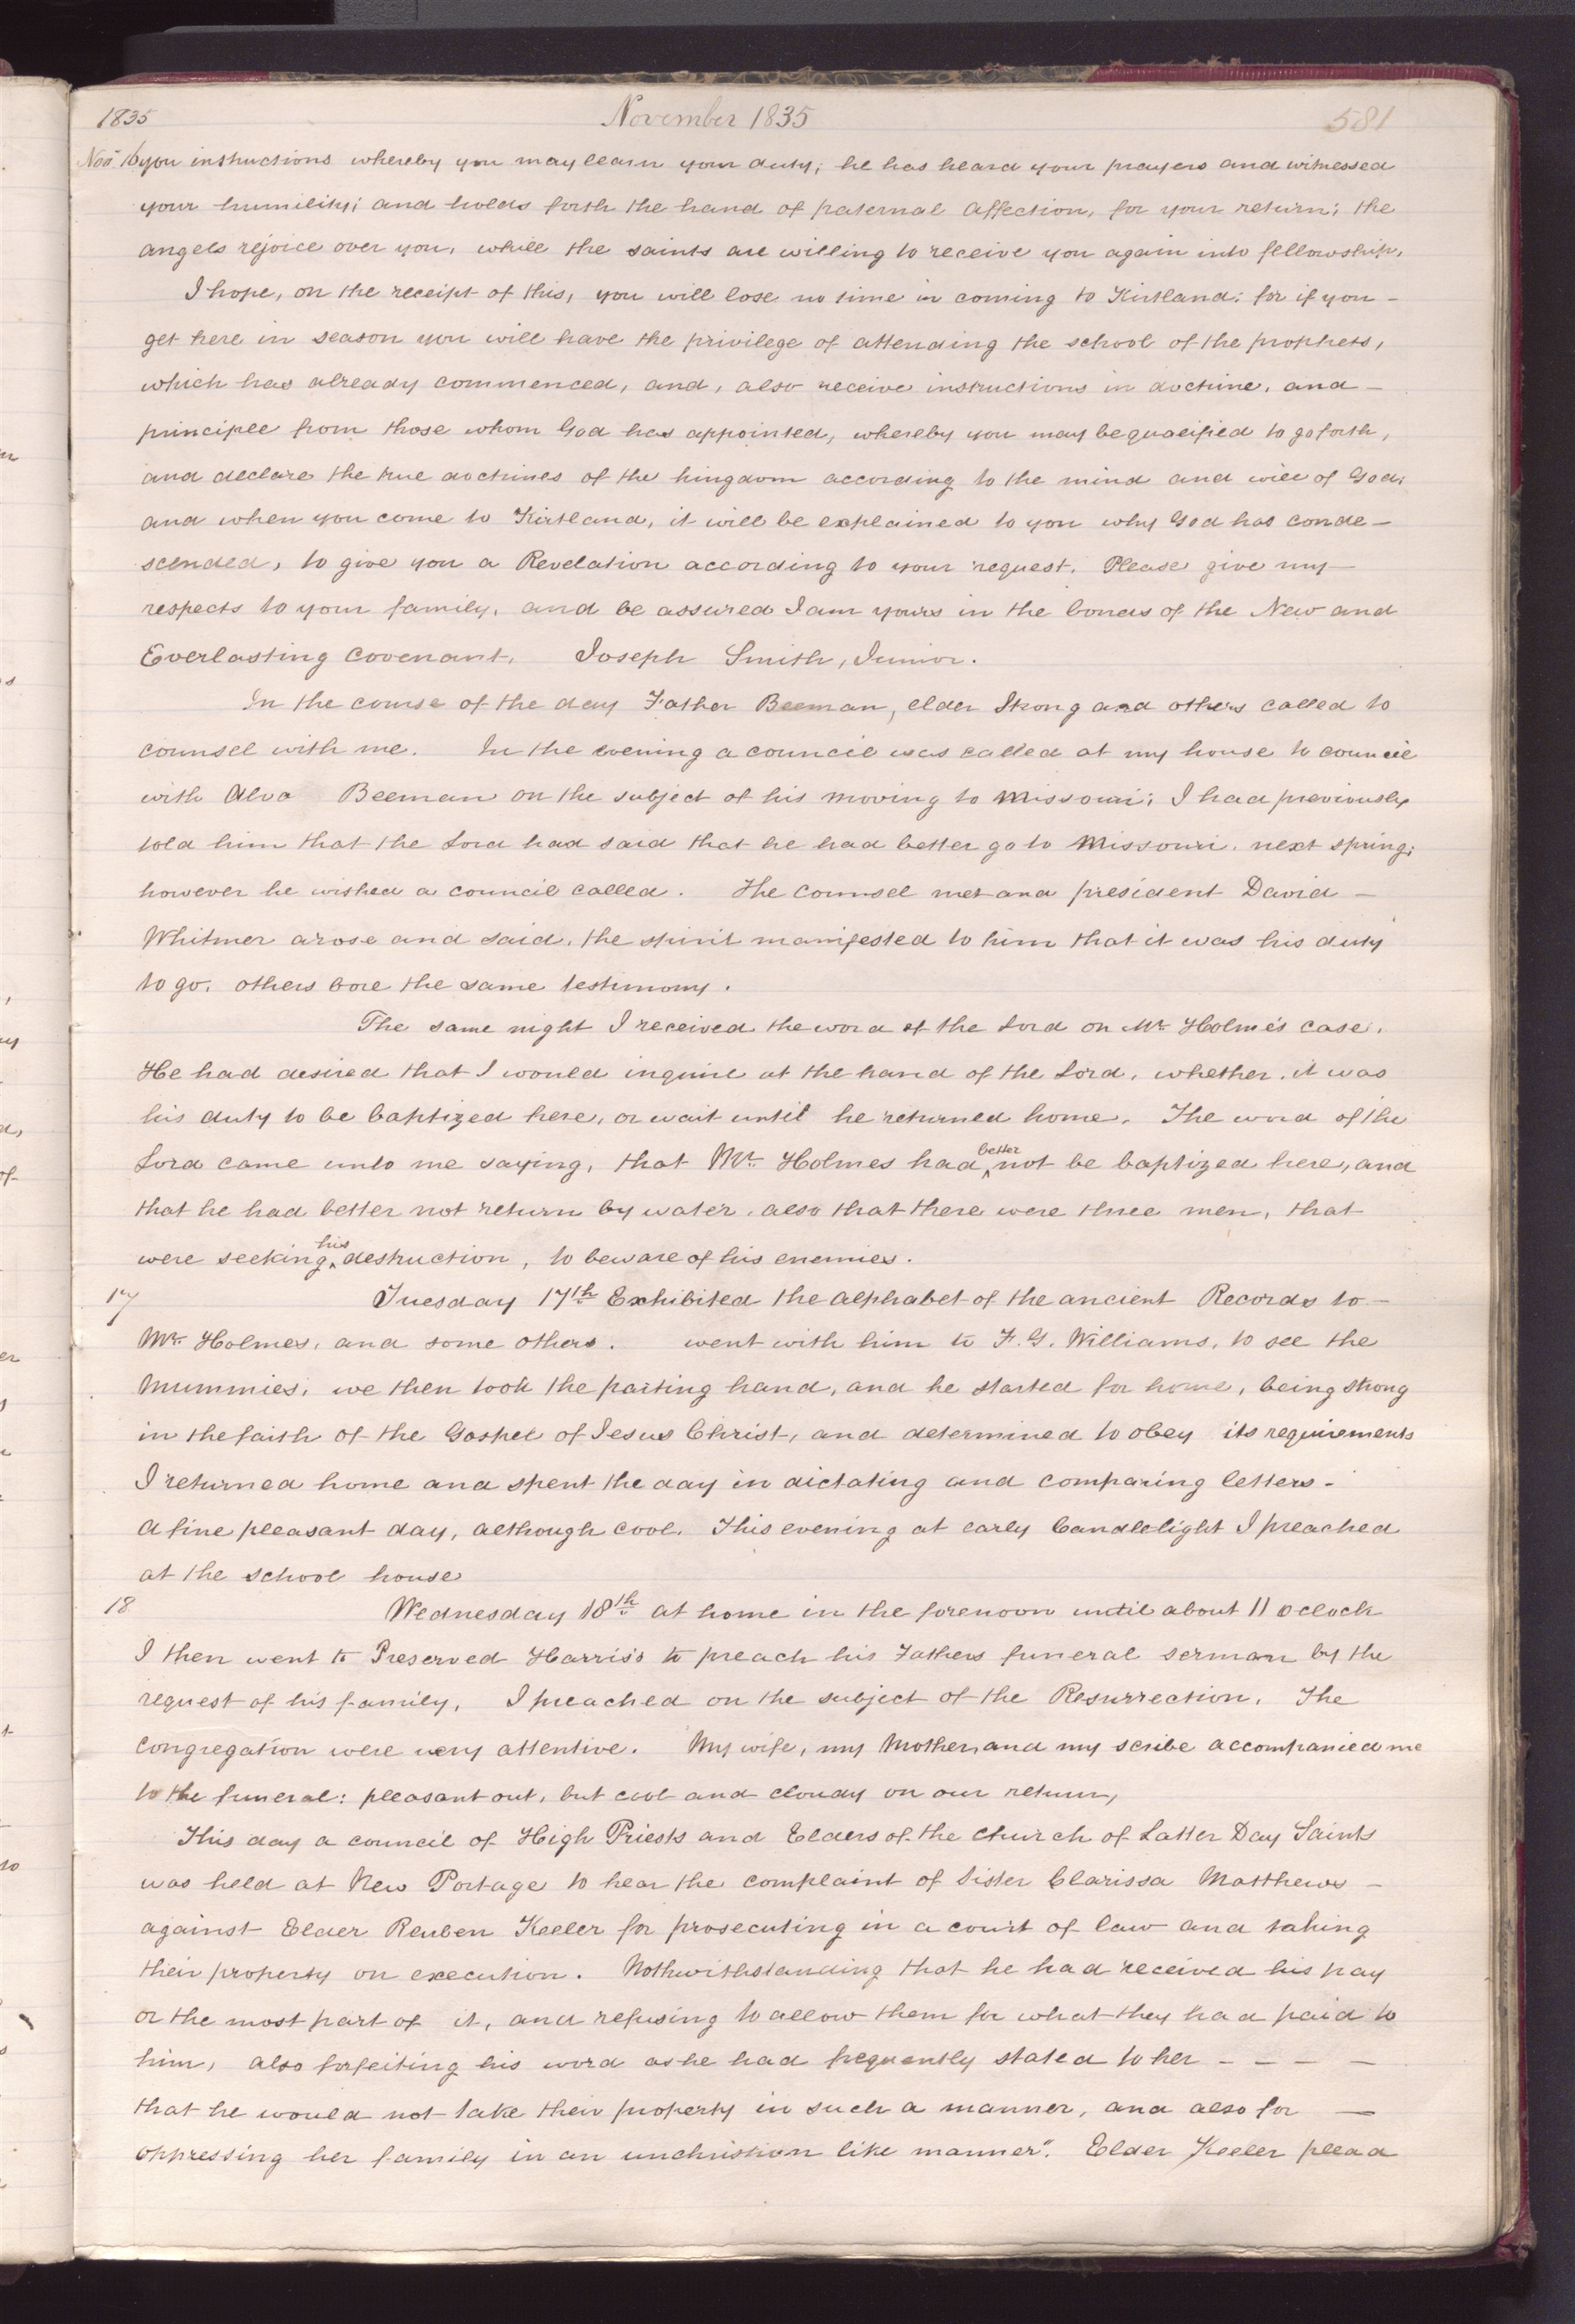 1835 November 1835 581
Nov 16 you instructions whereby you may learn your duty; he has heard your prayers and witnessed
your humility; and holds forth the hand of paternal affection, for your return; the
angels rejoice over you, while the saints are willing to receive you again into fellowship,
I hope, on the receipt of this, you will lose no time in coming to Kirtland; for if you –
get here in season you will have the privilege of attending the school of the prophets,
which has already commenced, and, also receive instructions in doctrine, and –
principle from those whom God has appointed, whereby you may be qualified to go forth,
and declare the true doctrines of the kingdom according to the mind and will of God;
and when you come to Kirtland, it will be explained to you why God has conde–
scended, to give you a Revelation according to your request. Please give my –
respects to your family, and be assured I am yours in the bonds of the New and
Everlasting Covenant, Joseph Smith, Junior.
In the course of the day Father Beeman, elder Strong and others called to
counsel with me. In the evening a council was called at my house to council
with Alva Beeman on the subject of his moving to Missouri; I had previously
told him that the Lord had said that he had better go to Missouri, next spring;
however he wished a council called. The counsel met and president David –
Whitmer arose and said, the spirit manifested to him that it was his duty
to go. others bore the same testimony.
The same night I received the word of the Lord on Mr Holme's case.
He had desired that I would inquire at the hand of the Lord, whether, it was
his duty to be baptized here, or wait until he returned home. The word of the
Lord came unto me saying, that Mr Holmes had better not be baptized here, and
that he had better not return by water, also that there were three men, that
were seeking his destruction, to beware of his enemies.
17 Tuesday 17th Exhibited the alphabet of the ancient Records to –
Mr Holmes, and some others. went with him to F. G. Williams, to see the
Mummies; we then took the parting hand, and he started for home, being strong
in the faith of the Gospel of Jesus Christ, and determined to obey its requirements
I returned home and spent the day in dictating and comparing letters –
A fine pleasant day, although cool. This evening at early Candlelight I preached
at the school house
18 Wednesday 18th at home in the forenoon until about 11 oclock
I then went to Preserved Harris's to preach his Fathers funeral serman by the
request of his family, I preached on the subject of the Resurrection, The
congregation were very attentive. My wife, my Mother, and my scribe accompanied me
to the funeral: pleasant out, but cool and cloudy on our return,
This day a council of High Priests and Elders of the Church of Latter Day Saints
was held at New Portage to hear the complaint of Sister Clarissa Matthews –
against Elder Reuben Keeler for prosecuting in a court of law and taking
their property on execution. Nothwithstanding that he had received his pay
or the most part of it, and refusing to allow them for what they had paid to
him, also forfeiting his word as he had frequently stated to her – – – –
that he would not take their property in such a manner, and also for –
oppressing her family in an unchristian like manner". Elder Keeler plead